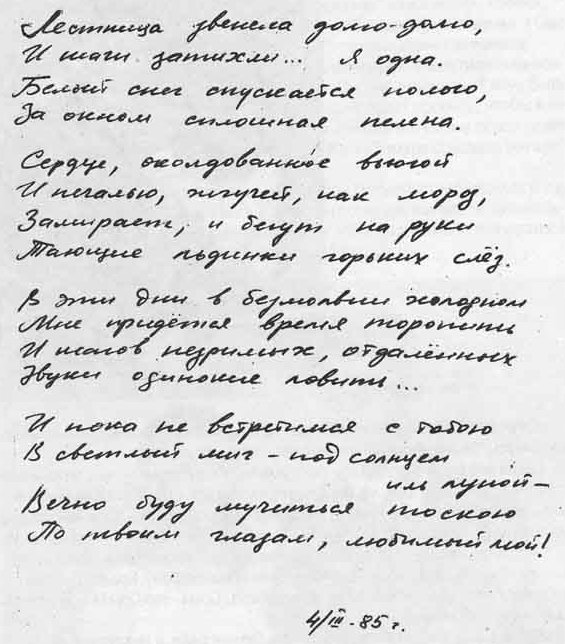 Лестница звенела долго-долго,
И шаги затихли... Я одна.
Белый снег опускается полого,
За окном сплошная пелена.
Сердце, околдованное вьюгой
И печалью, жгучей, как мороз,
Замирает, и бегут на руки
Тающие льдинки горьких слёз.
В эти дни в безмолвии холодном
Мне придётся время торопить
И шагов незримых, отдалённых
Звуки одинокие ловить...
И пока не встретимся с тобою
В светлый миг – под солнцем
иль луной –
Вечно буду мучиться тоскою
По твоим глазам, любимый мой!
4/III-85 г.